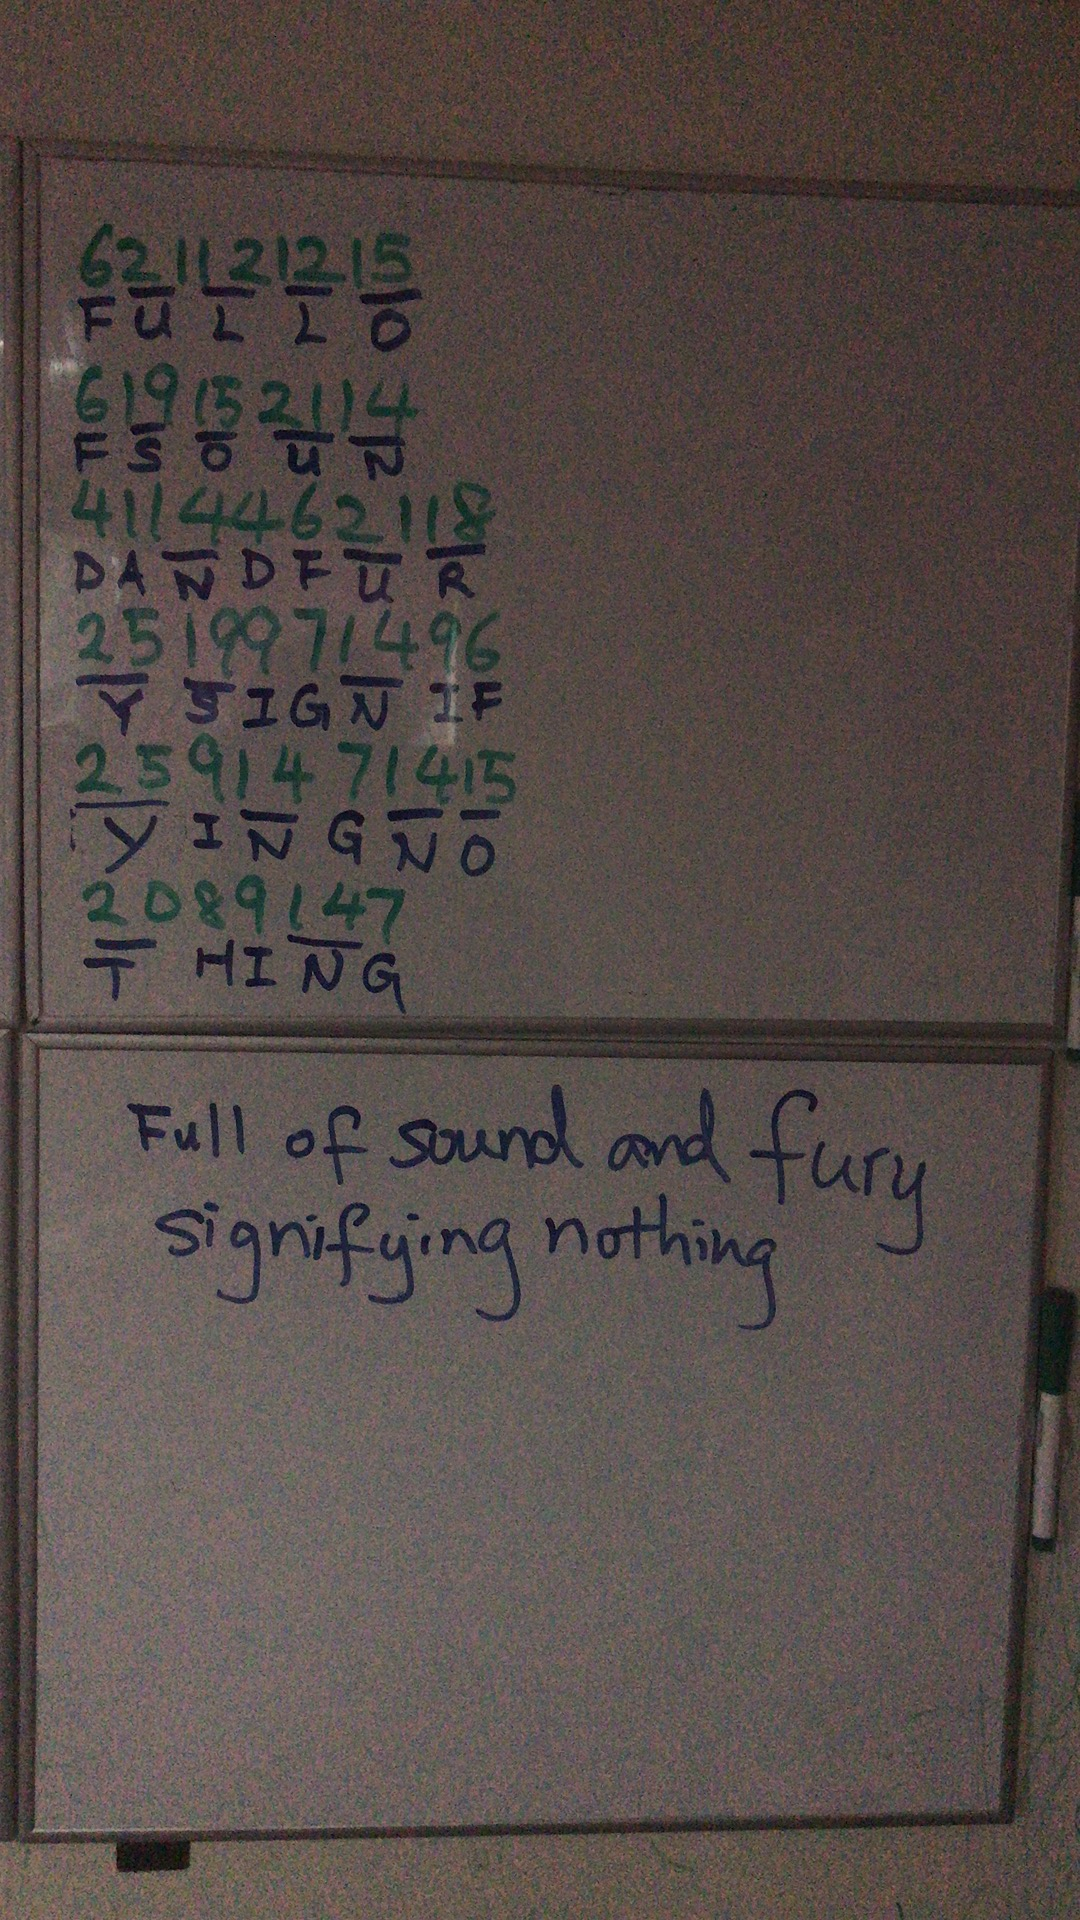 621121215
F U L L O
619152114
F S O U N
4114462118
D A N D F U R
2519971496
Y S I G N I F
25914 71415
Y I N G N O
2089147
T H I N G
Full of sound and fury
signifying nothing